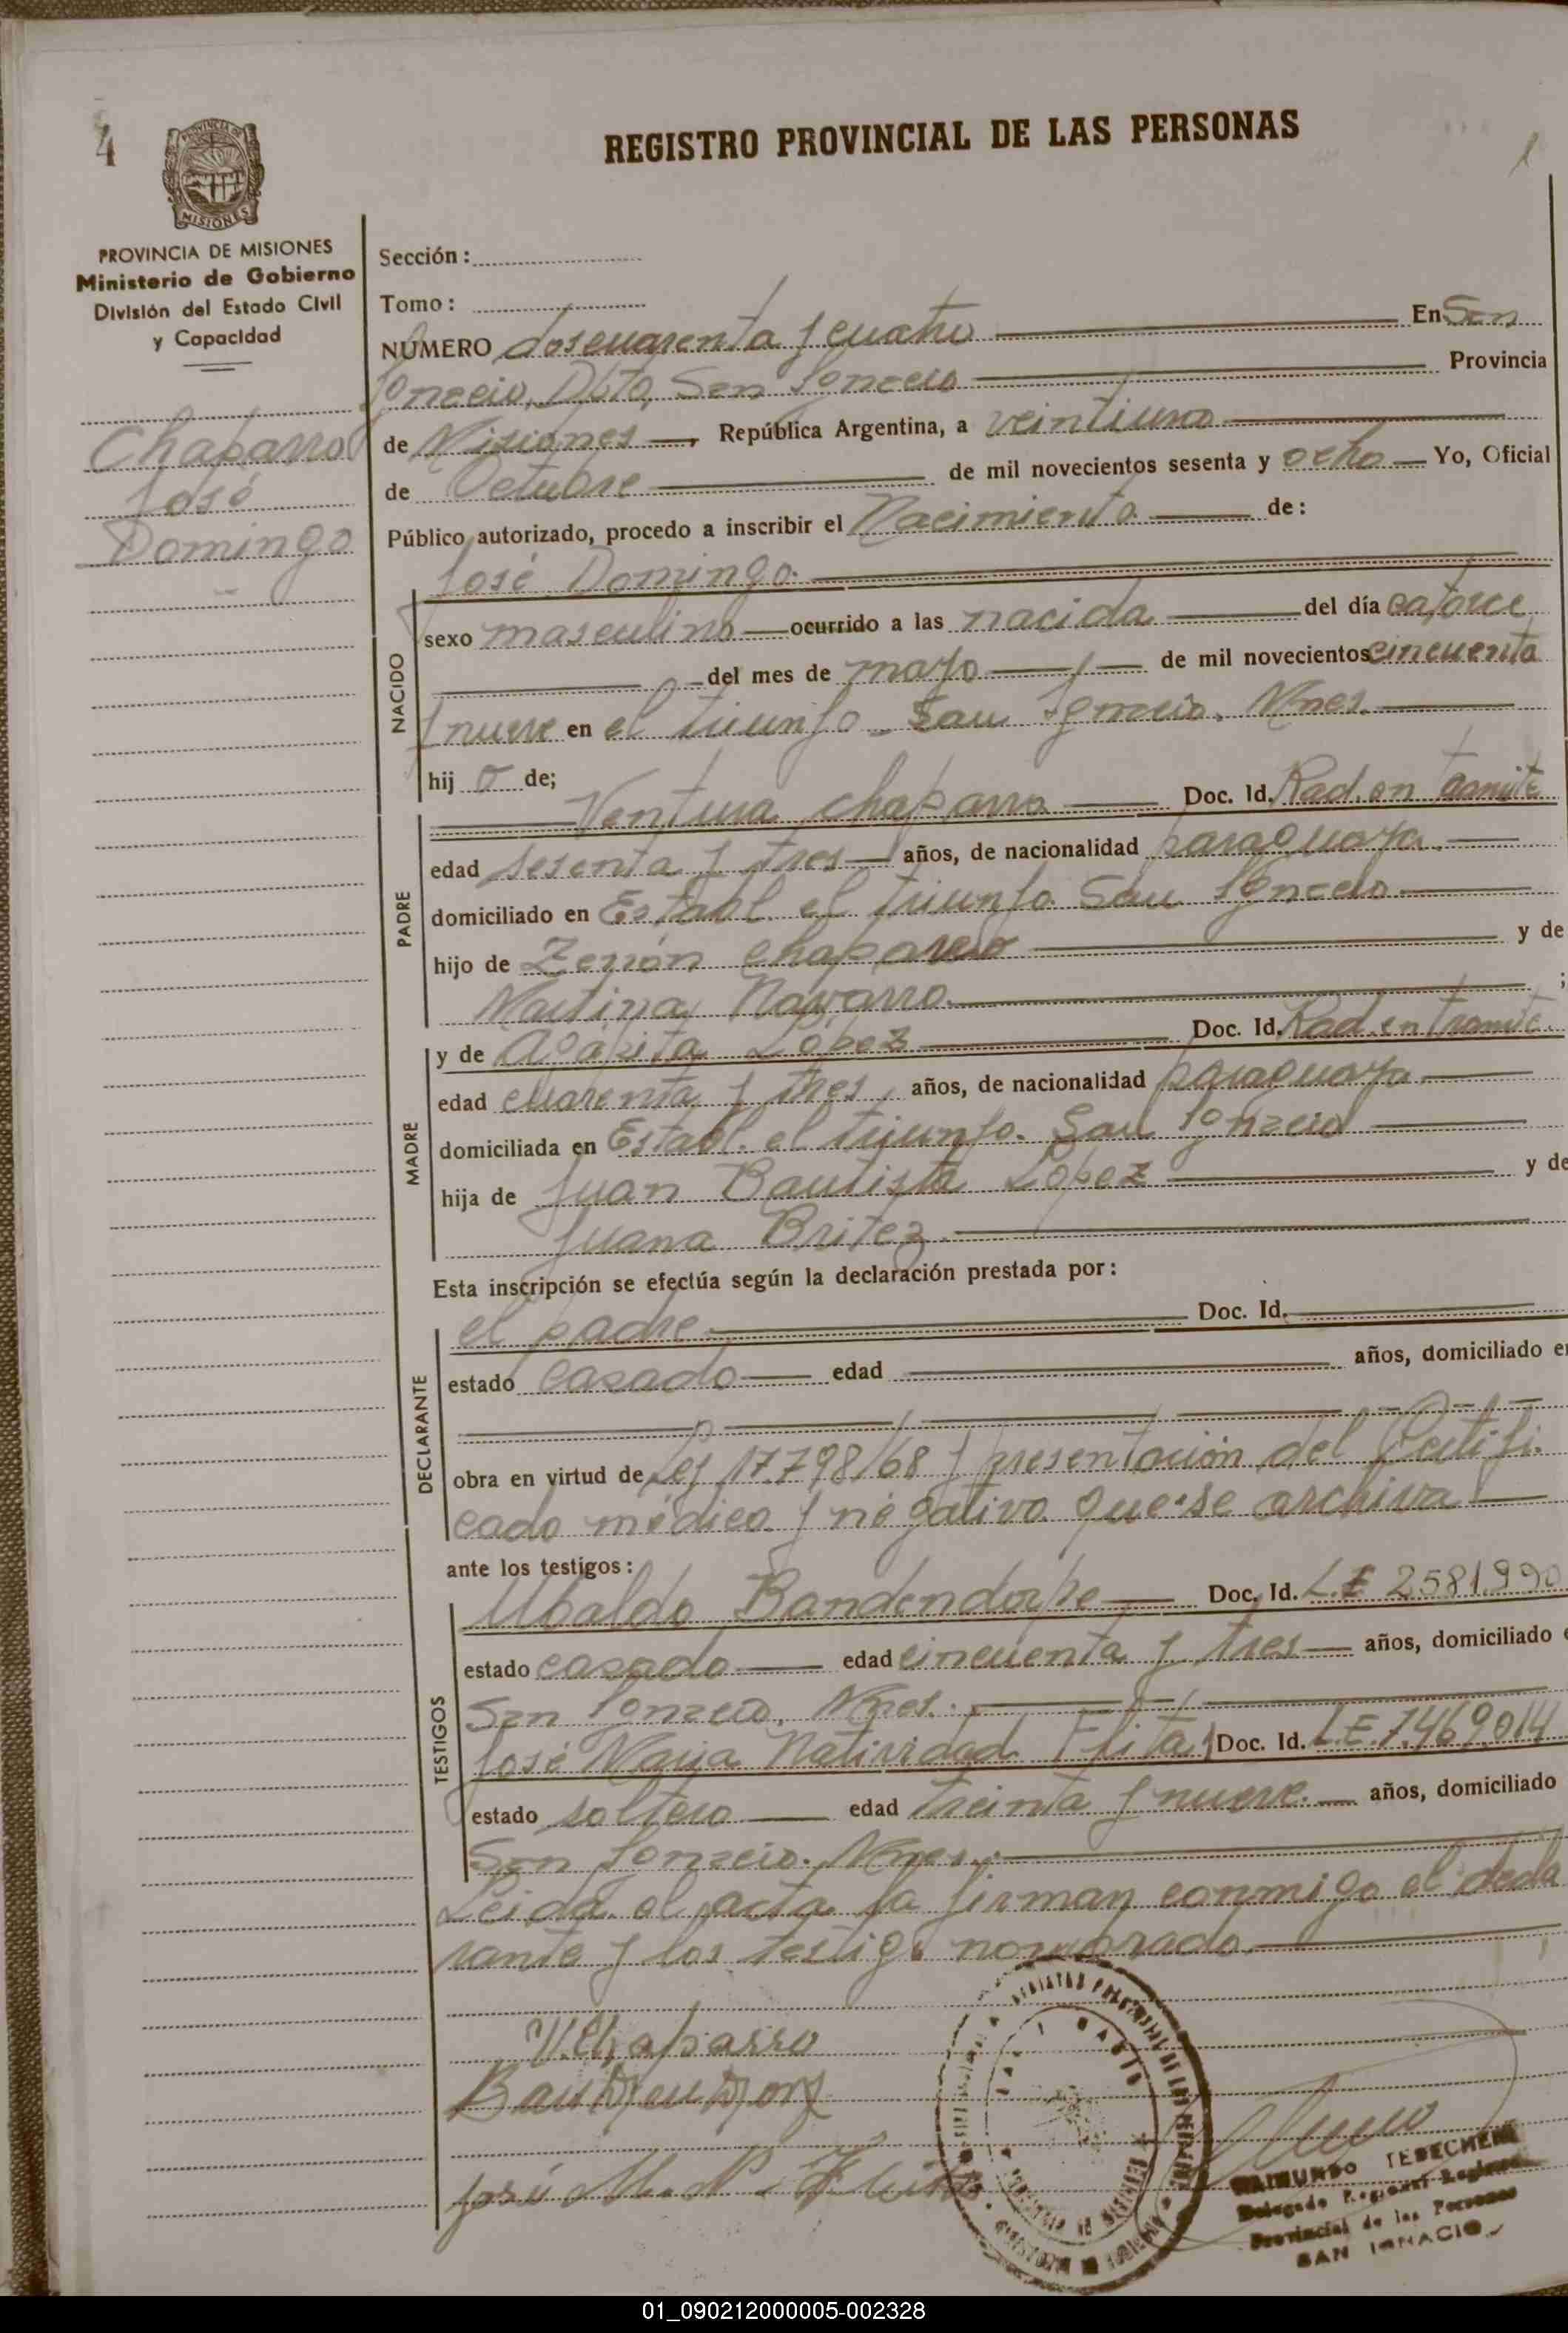 4
REGISTRO PROVINCIAL DE LAS PERSONAS
MISIONES
PROVINCIA DE MISIONES
Ministerio de Gobierno
División del Estado Civil
y Capacidad
Chaparro
José
Domingo
Sección :
Tomo :
NÚMERO doscuarenta y cuatro En San
Ignacio, Dpto, San Ignacio Provincia
de Misiones, República Argentina, a veintiuno
de Octubre de mil novecientos sesenta y ocho Yo, Oficial
Público autorizado, procedo a inscribir el Nacimiento de :
José Domingo
NACIDO
sexo masculino ocurrido a las nacida del día catorce
del mes de mayo de mil novecientos cincuenta
y nueve en el triunfo San Ignacio. Mnes.
hij o de;
PADRE
Ventura Chaparro Doc. Id. Rad. en tramite
edad sesenta y tres años, de nacionalidad paraguaya.
domiciliado en Establ. el triunfo San Ignacio
hijo de Zenón Chaparro y de
Martina Navarro ;
MADRE
y de Agapita López Doc. Id. Rad. en tramite.
edad cuarenta y tres, años, de nacionalidad paraguaya
domiciliada en Establ. el triunfo. San Ignacio
hija de Juan Bautista López y de
Juana Britez.
Esta inscripción se efectúa según la declaración prestada por :
DECLARANTE
el padre Doc. Id.
estado casado edad años, domiciliado en
obra en virtud de Ley 17.798/68 y presentación del Certifi-
cado médico y negativo que se archiva
ante los testigos :
TESTIGOS
Ubaldo Bandendorpe Doc. Id. L.E 2581.990
estado casado edad cincuenta y tres años, domiciliado
San Ignacio, Mnes.
José Maria Natividad Doc. Id. L.E. 7.469.014
estado soltero edad treinta y nueve. años, domiciliado
San Ignacio. Mnes.
Leida el acta la firman conmigo el decla
rante y los testigo nombrado.
V. Chaparro
José M. N.
RAIMUNDO
Delegado Regional Registro
Provincial de las Personas
SAN IGNACIO
01_090212000005-002328